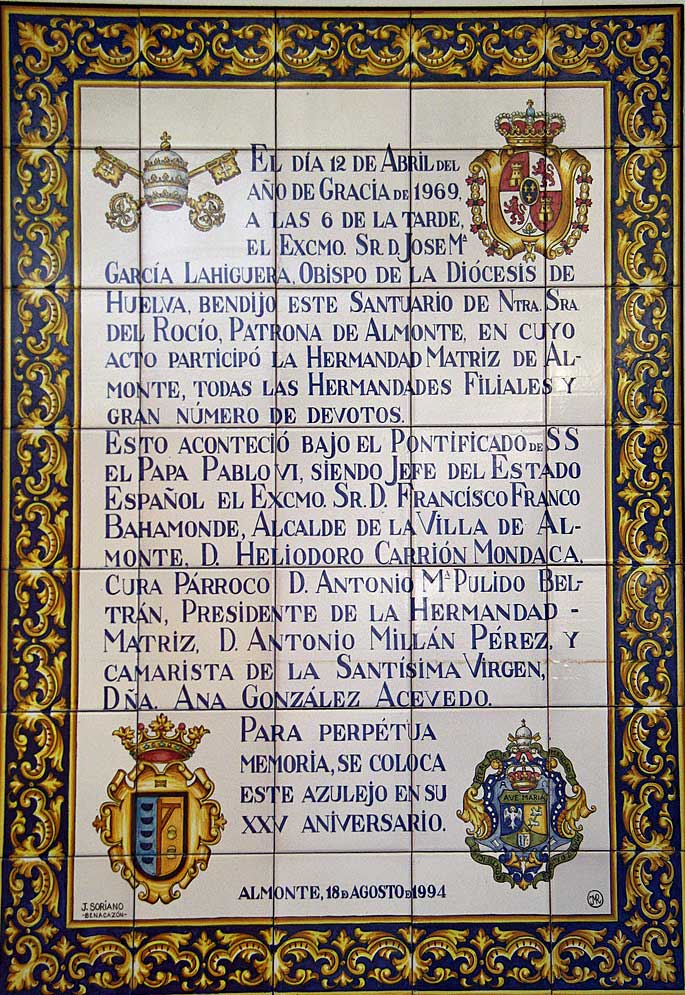 EL DÍA 12 DE ABRIL DEL
AÑO DE GRACIA DE 1969,
A LAS 6 DE LA TARDE,
EL EXCMO. SR. D. JOSE Mª
GARCÍA LAHIGUERA, OBISPO DE LA DIÓCESIS DE
HUELVA, BENDIJO ESTE SANTUARIO DE NTRA. SRA
DEL ROCÍO, PATRONA DE ALMONTE, EN CUYO
ACTO PARTICIPÓ LA HERMANDAD MATRIZ DE AL-
MONTE, TODAS LAS HERMANDADES FILIALES Y
GRAN NÚMERO DE DEVOTOS.
ESTO ACONTECIÓ BAJO EL PONTIFICADO DE SS
EL PAPA PABLO VI, SIENDO JEFE DEL ESTADO
ESPAÑOL EL EXCMO. SR. D. FRANCISCO FRANCO
BAHAMONDE, ALCALDE DE LA VILLA DE AL-
MONTE, D. HELIODORO CARRIÓN MONDACA,
CURA PÁRROCO D. ANTONIO Mª PULIDO BEL-
TRÁN, PRESIDENTE DE LA HERMANDAD -
MATRIZ, D. ANTONIO MILLÁN PÉREZ, Y
CAMARISTA DE LA SANTÍSIMA VIRGEN,
DÑA. ANA GONZÁLEZ ACEVEDO.
PARA PERPÉTUA
MEMORIA, SE COLOCA
ESTE AZULEJO EN SU
XXV ANIVERSARIO.
AVE MARIA
ALMONTE, 18 DE AGOSTO DE 1994
J. SORIANO
-BENACAZÓN-